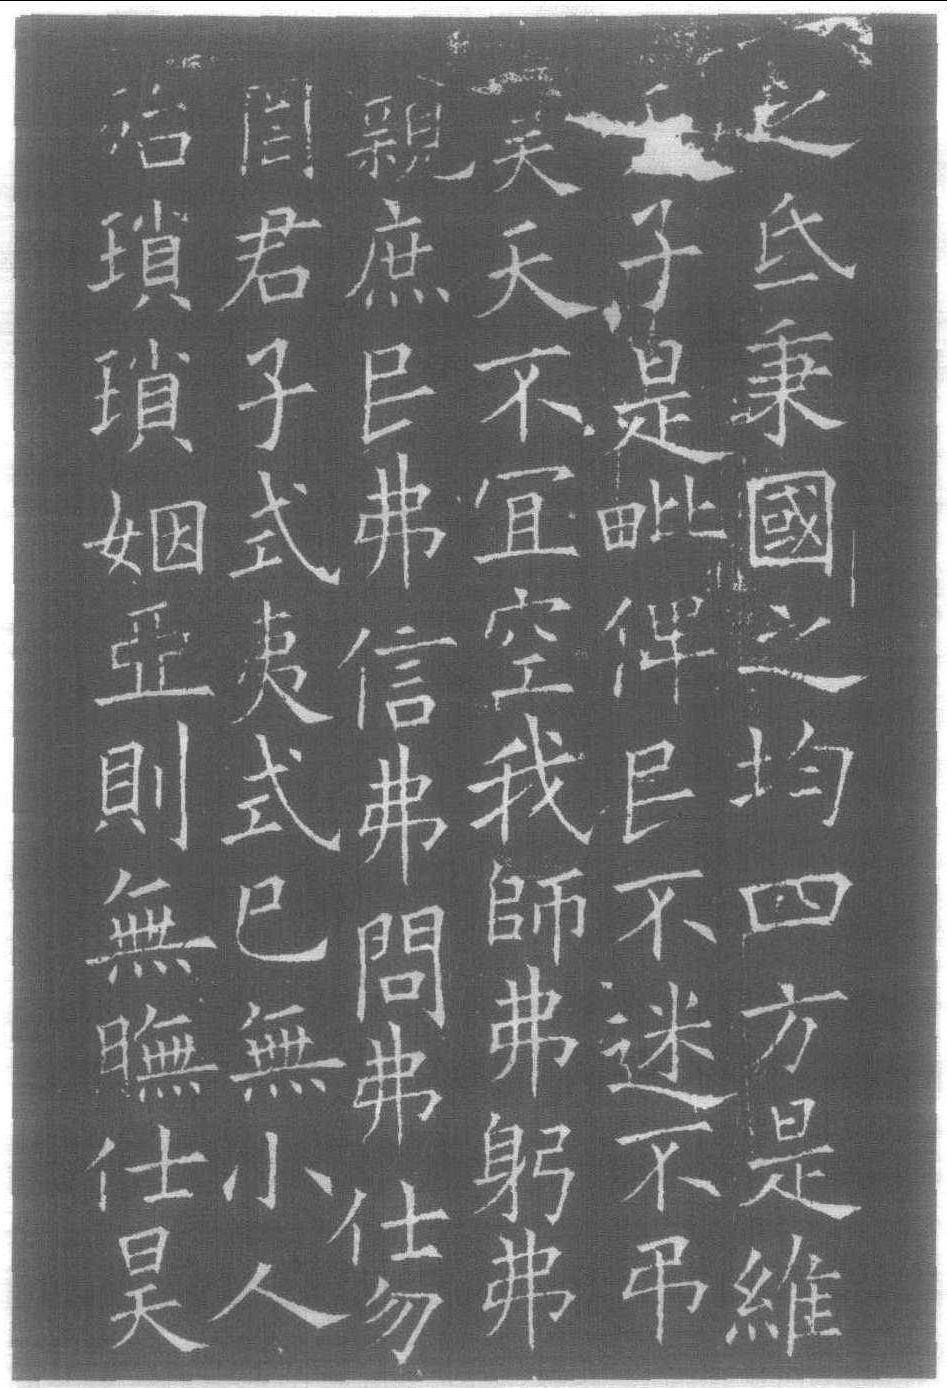 之氐秉國之均四方是維
子是毗俾民不迷不弔
昊天不宜空我師弗躬弗
親庶民弗信弗問弗仕勿
罔君子式夷式已無小人
殆瑣瑣姻亞則無膴仕昊